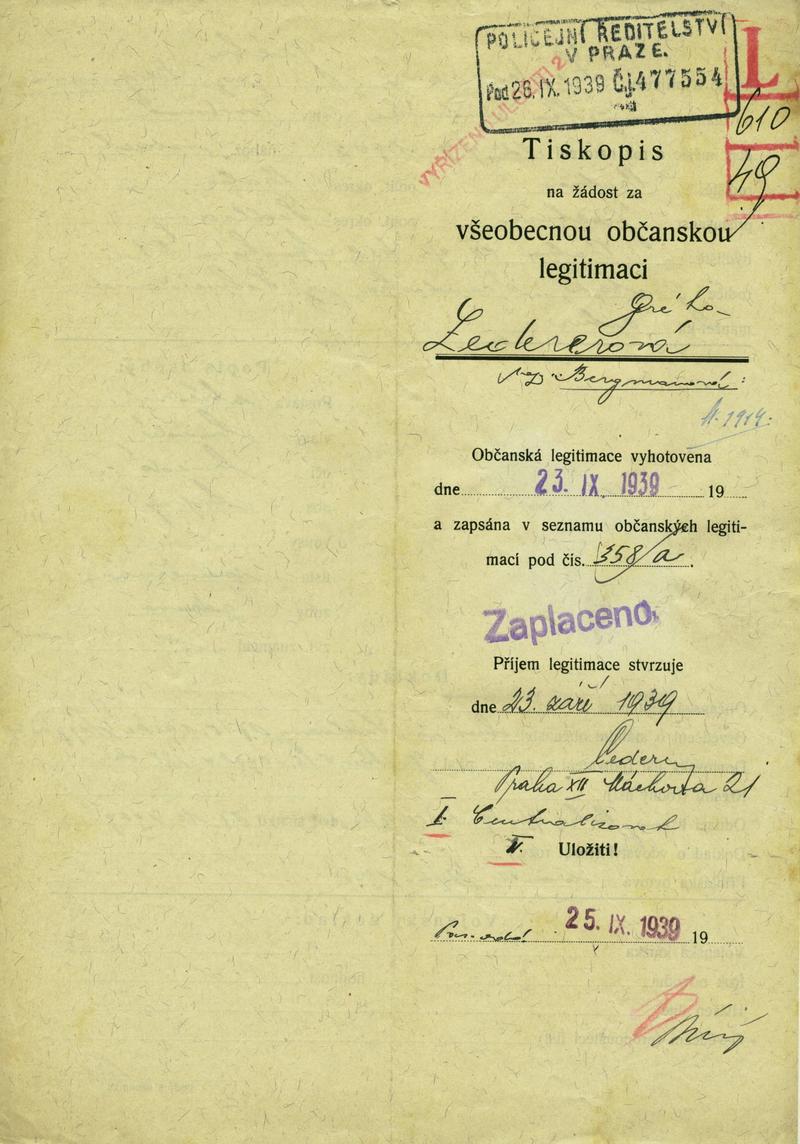 POLICEJNÍ ŘEDITELSTVÍ
V PRAZE.
Pod 26. IX. 1939 Č.j. 477554
L
610
49
Tiskopis
na žádost za
všeobecnou občanskou
legitimaci
Ledererová
Bergmanová
1914
Občanská legitimace vyhotovena
dne 23. IX. 1939 19
a zapsána v seznamu občanských legiti-
mací pod čís. 358/a.
Zaplaceno.
Příjem legitimace stvrzuje
dne 23. září 1939
Praha XII Máchova 21
I. Centralisovat
II. Uložiti!
25. IX. 1939 19